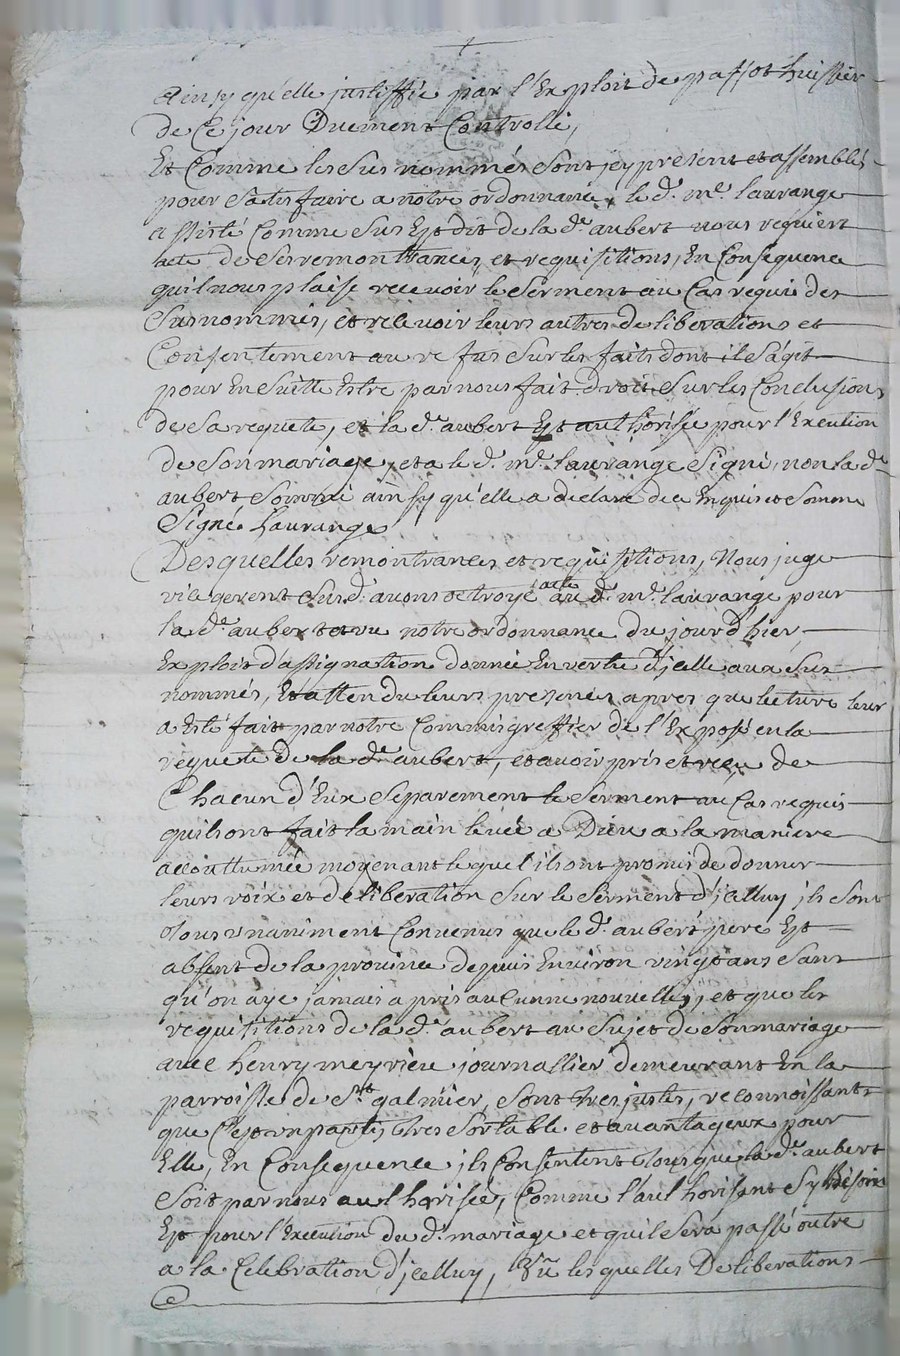 Ainsy qu'elle justiffie par l'Exploit de passot huissier
de Ce jour Duement Controllé,
Et Comme les sus nommés sont jcy present et assemblés
pour satisfaire a notre ordonnance, le d.t m.e laurange
assisté Comme sus Est dit de la d.e aubert nous requiert
acte de ses remontrances, et requisitions, En Consequence
quil nous plaise recevoir le serment au Cas requis des
susnommés, et recevoir leurs autres deliberations et
Consentement au refus sur les faits dont il s'agit
pour En suitte Estre par nous fait droit sur les Conclusions
de sa requete, et la d.e aubert Est authorisée pour l'Execution
de son mariage, et a le d.t m.e laurange signé, non la d.e
aubert sommé ainsy qu'elle a declaré de Enquise et somme
Signé Laurange
Desquelles remontrances et requisitions, Nous juge
vice gerent susd.t avons octroyé acte au d.t m.e laurange pour
la d.e aubert et vu notre ordonnance du jourd'hier
Exploit d'assignation donnée En vertu d'jcelle aux sus
nommés, Et attendu leurs presences, apres que lecture leur
a Esté fait par notre Commis greffier de l'Exposé en la
requete de la d.e aubert, et avoir pris et reçu de
Chacun d'Eux separement le serment au Cas requis
quils ont fait la main levée a Dieu a la maniere
accoutumée moyenant lequel ils ont promis de donner
leurs voix et deliberation sur le serment d'jcelluy jls sont
tous unaniment Convenus que le d.t aubert pere Est
absent de la province depuis Environ vingt ans sans
qu'on aye jamais apris aucunne nouvelles, et que les
requisitions de la d.e aubert au sujet de son mariage
avec henry meyrieu journallier demeurant En la
parroisse de S.nt galmier, sont tres justes, reconnoissant
que C'est un party, tres sortable et avantageux pour
Elle, En Consequence jls Consentent tous que la d.e aubert
soit par nous authorisée, Comme l'authorisent sy Besoin
Est pour l'Execution du d.t mariage et quil sera passé outre
a la Celebration d'jcelluy, Sur lesquelles Deliberations